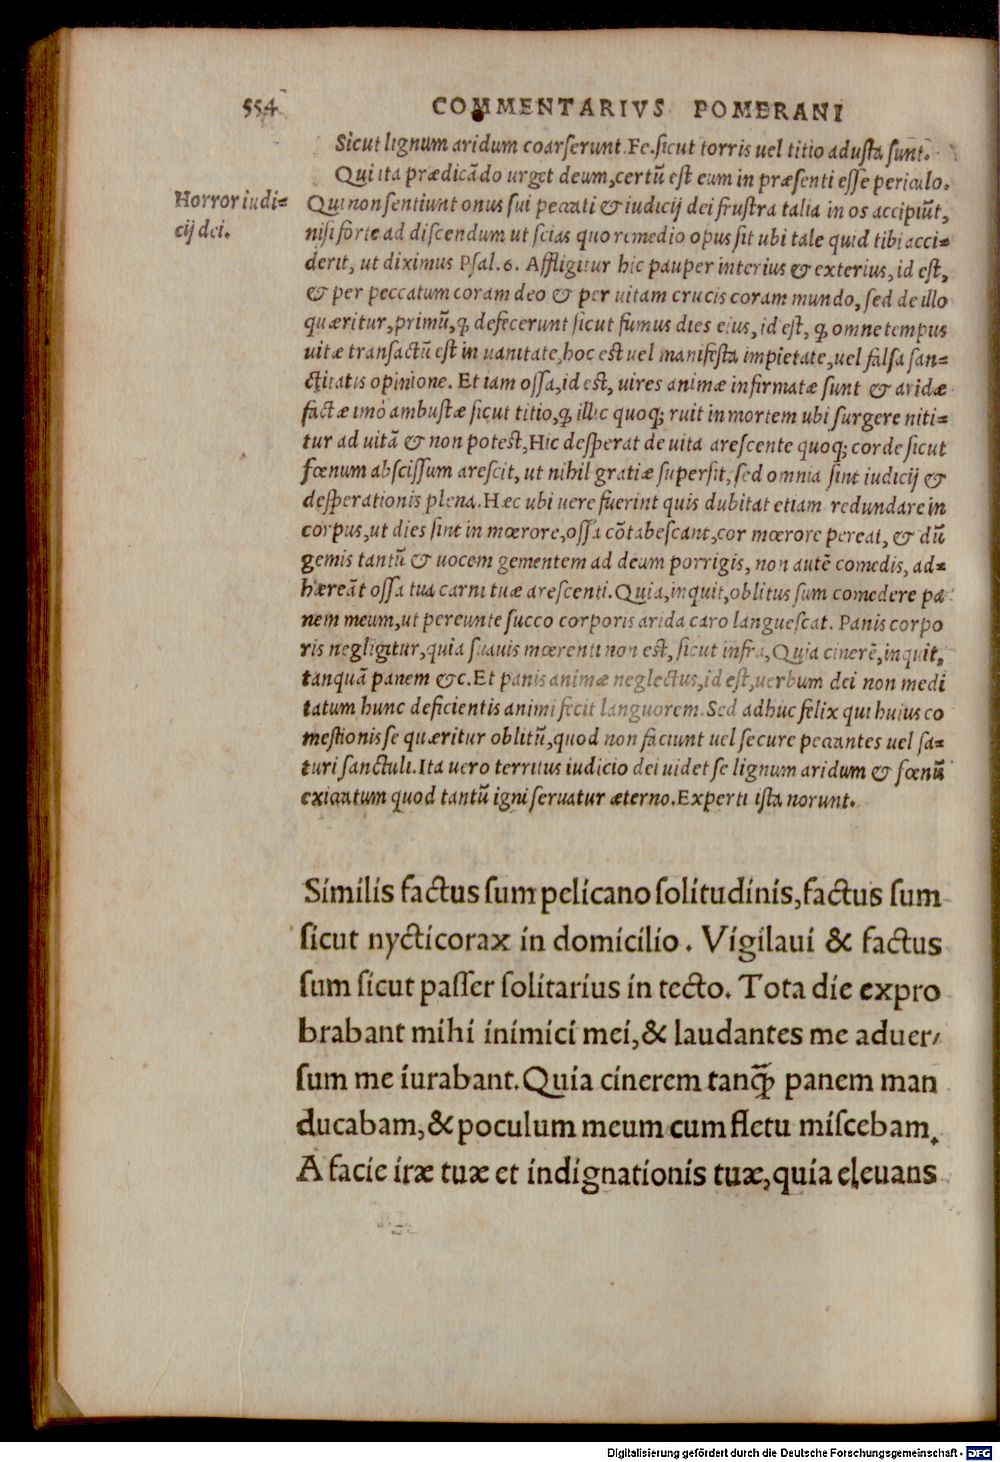 554 COMMENTARIVS POMERANI
Sicut lignum aridum coarserunt. Fe. sicut torris uel titio adusta sunt.
Qui ita prædicãdo urget deum, certũ est eum in præsenti esse periculo.
Horror iudi=
cij dei.
Qui non sentiunt onus sui peccati & iudicij dei frustra talia in os accipiũt,
nisi forte ad discendum ut scias quo remedio opus sit ubi tale quid tibi acci=
derit, ut diximus Psal. 6. Affligitur hic pauper interius & exterius, id est,
& per peccatum coram deo & per uitam crucis coram mundo, sed de illo
quæritur, primũ, ꝙ defecerunt sicut fumus dies eius, id est, ꝙ omne tempus
uitæ transactũ est in uanitate, hoc est uel manifesta impietate, uel falsa san=
ctitatis opinione. Et iam ossa, id est, uires animæ infirmatæ sunt & aridæ
factæ imò ambustæ sicut titio, ꝙ illic quoqꝫ ruit in mortem ubi surgere niti=
tur ad uitã & non potest, Hic desperat de uita arescente quoqꝫ corde sicut
fœnum abscissum arescit, ut nihil gratiæ supersit, sed omnia sint iudicij &
desperationis plena. Hæc ubi uere fuerint quis dubitat etiam redundare in
corpus, ut dies sint in mœrore, ossa cõtabescant, cor mœrore pereat, & dũ
gemis tantũ & uocem gementem ad deum porrigis, non autẽ comedis, ad=
hæreãt ossa tua carni tuæ arescenti. Quia, inquit, oblitus sum comedere pa
nem meum, ut pereunte succo corporis arida caro languescat. Panis corpo
ris negligitur, quia suauis mœrenti non est, sicut infra, Quia cinerẽ, inquit,
tanquã panem &c. Et panis animæ neglectus, id est, uerbum dei non medi
tatum hunc deficientis animi fecit languorem. Sed adhuc felix qui huius co
mestionis se quæritur oblitũ, quod non faciunt uel secure peccantes uel sa=
turi sanctuli. Ita uero territus iudicio dei uidet se lignum aridum & fœnũ
exiccatum quod tantũ igni seruatur æterno. Experti ista norunt.
Similis factus sum pelicano solitudinis, factus sum
sicut nycticorax in domicilio. Vigilaui & factus
sum sicut passer solitarius in tecto. Tota die expro
brabant mihi inimici mei, & laudantes me aduer/
sum me iurabant. Quia cinerem tanꝙ̃ panem man
ducabam, & poculum meum cum fletu miscebam.
A facie iræ tuæ et indignationis tuæ, quia eleuans
Digitalisierung gefördert durch die Deutsche Forschungsgemeinschaft - DFG